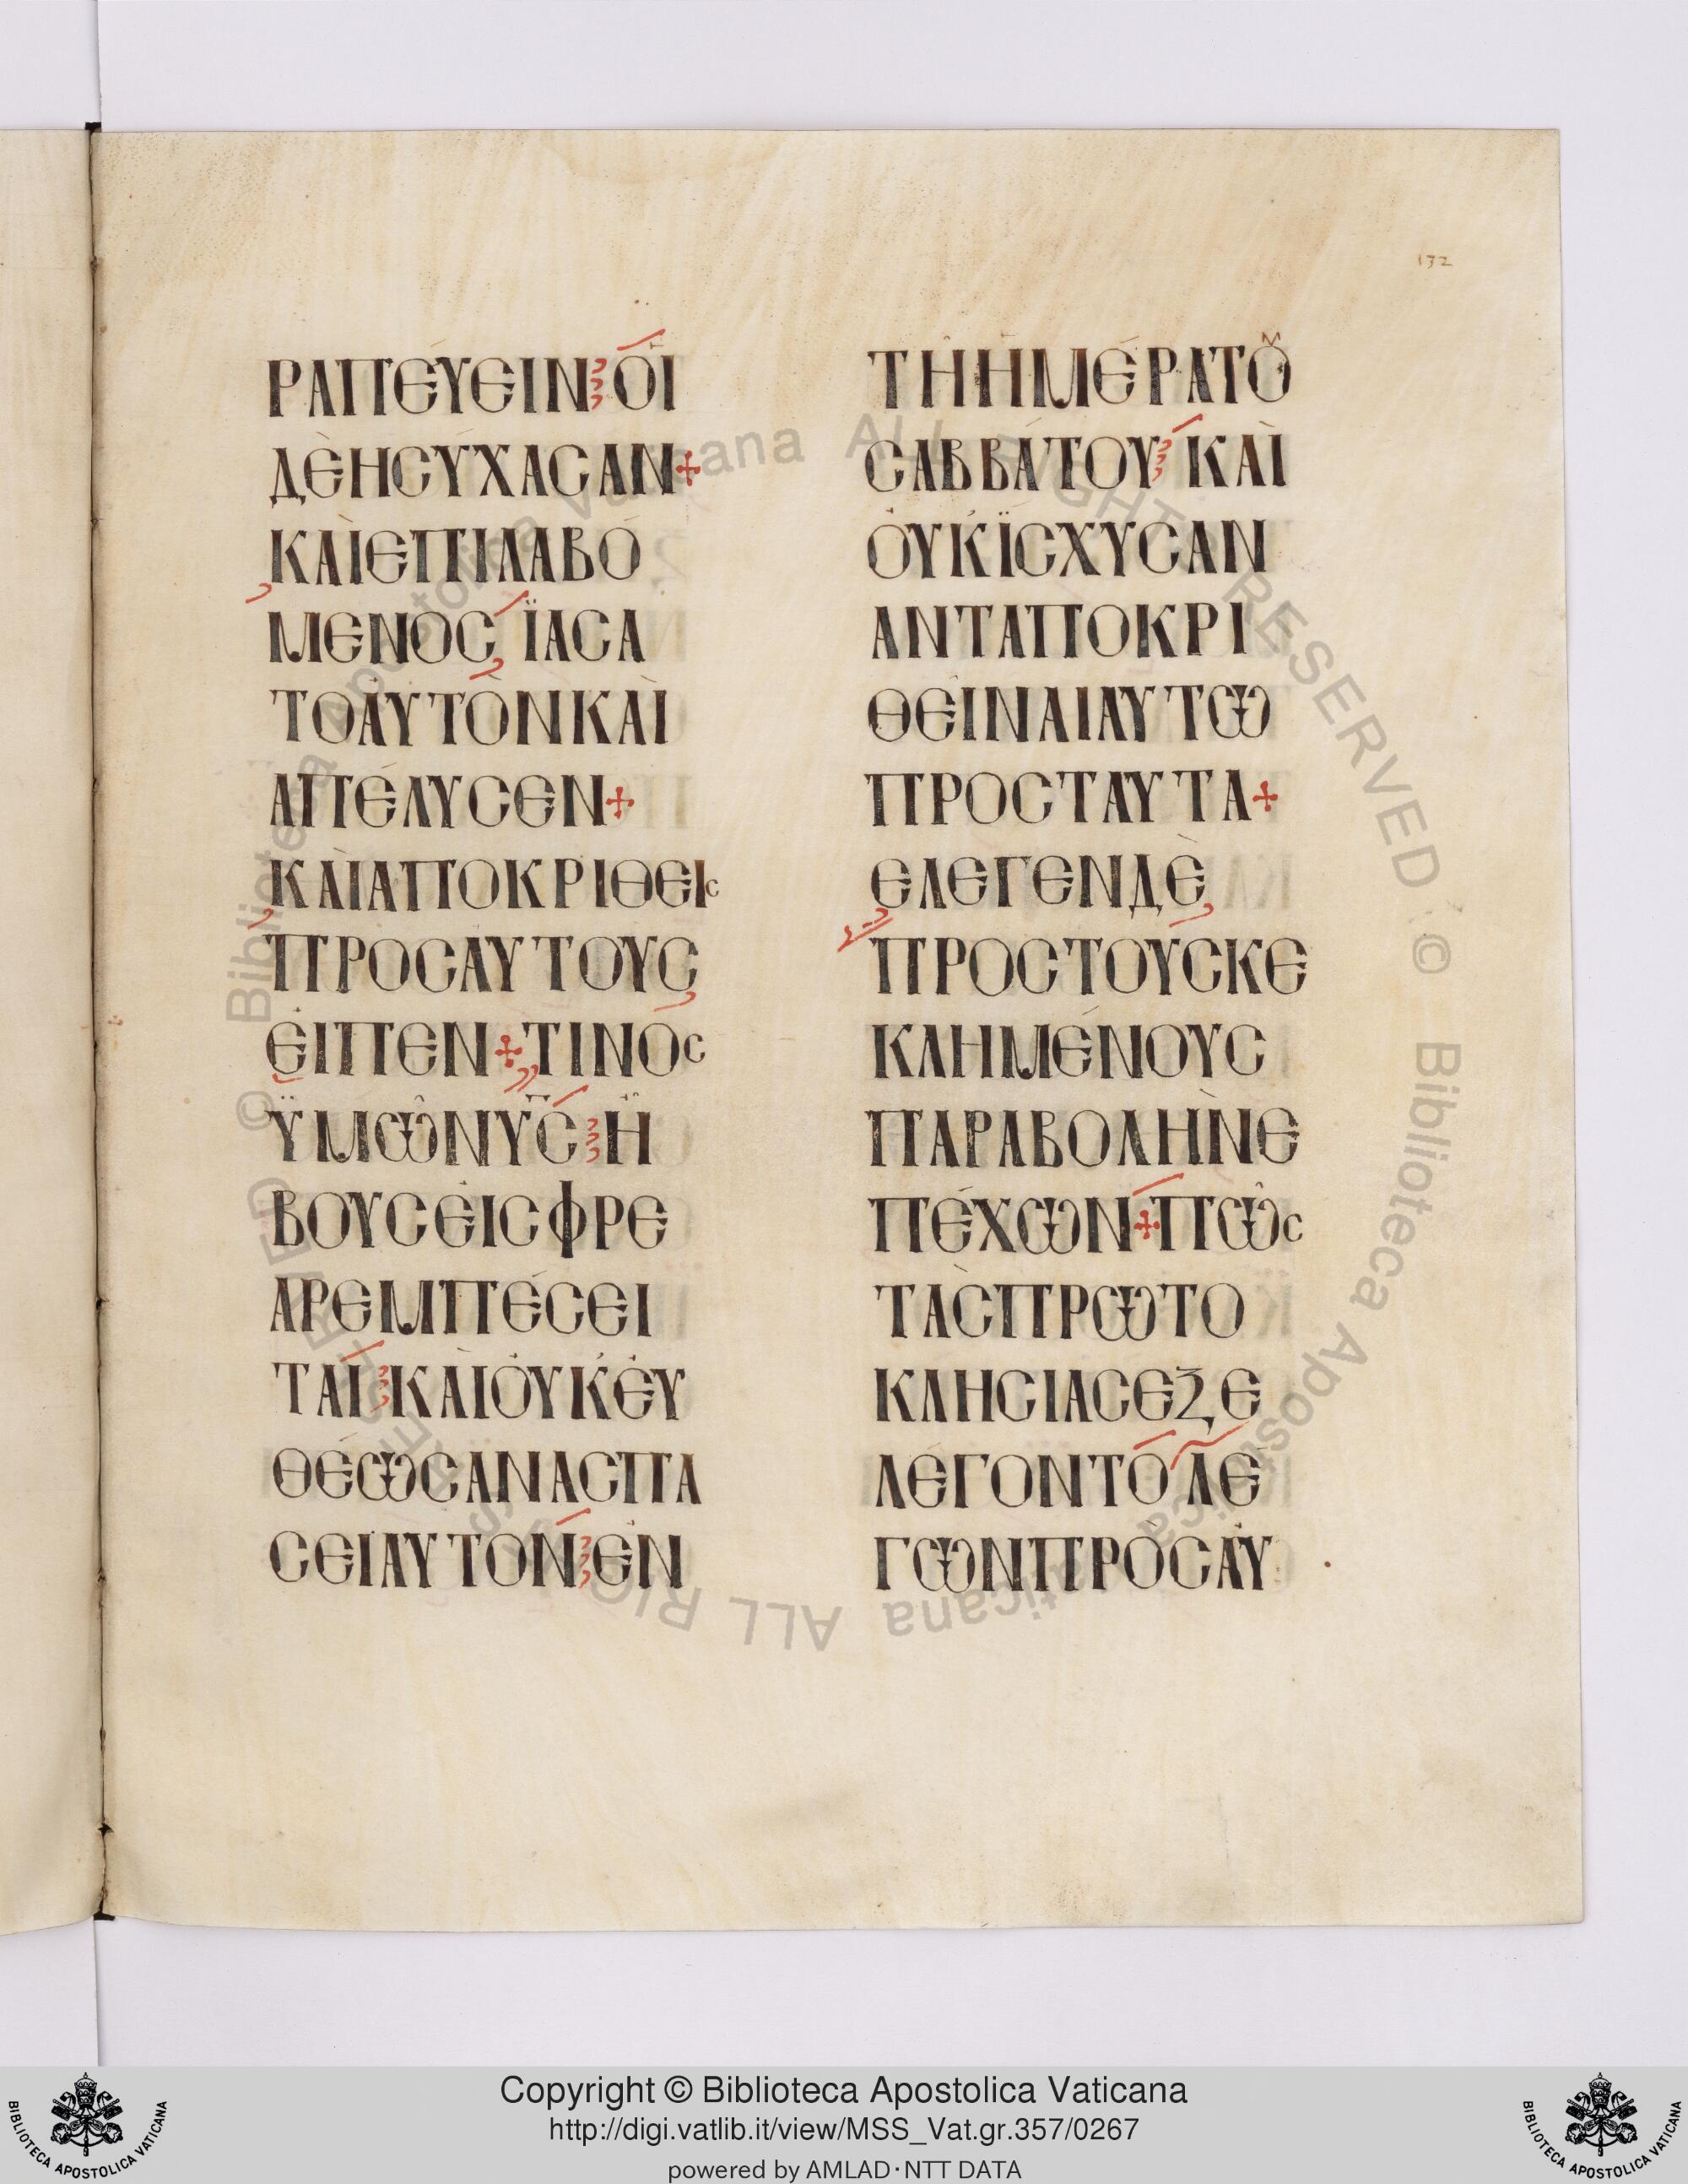 132
ΡΑΠΕΥΕΙΝ ΟΙ
ΔΕΗСΥΧΑСΑΝ+
ΚΑΙΕΠΙΛΑΒΟ
ΜΕΝΟС ΪΑСΑ
ΤΟΑΥΤΟΝΚΑΙ
ΑΠΕΛΥСΕΝ+
ΚΑΙΑΠΟΚΡΙΘΕΙС
ΠΡΟСΑΥΤΟΥС
ΕΙΠΕΝ+ΤΙΝΟС
ΫΜΩΝΥС Η
ΒΟΥСΕΙСΦΡΕ
ΑΡΕΜΠΕСΕΙ
ΤΑΙ ΚΑΙΟΥΚΕΥ
ΘΕΩСΑΝΑСΠΑ
СΕΙΑΥΤΟΝ ΕΝ
ΤΗΗΜΕΡΑΤΟΥ
СΑΒΒΑΤΟΥ ΚΑΙ
ΟΥΚΪСΧΥСΑΝ
ΑΝΤΑΠΟΚΡΙ
ΘΕΙΝΑΙΑΥΤΩ
ΠΡΟСΤΑΥΤΑ+
ΕΛΕΓΕΝΔΕ
ΠΡΟСΤΟΥСΚΕ
ΚΛΗΜΕΝΟΥС
ΠΑΡΑΒΟΛΗΝΕ
ΠΕΧΩΝ+ΠΩС
ΤΑСΠΡΩΤΟ
ΚΛΗСΙΑСΕΞΕ
ΛΕΓΟΝΤΟ ΛΕ
ΓΩΝΠΡΟСΑΥ
© Biblioteca Apostolica Vaticana ALL RIGHTS RESERVED
Copyright © Biblioteca Apostolica Vaticana
http://digi.vatlib.it/view/MSS_Vat.gr.357/0267
powered by AMLAD·NTT DATA
BIBLIOTECA APOSTOLICA VATICANA
BIBLIOTECA APOSTOLICA VATICANA